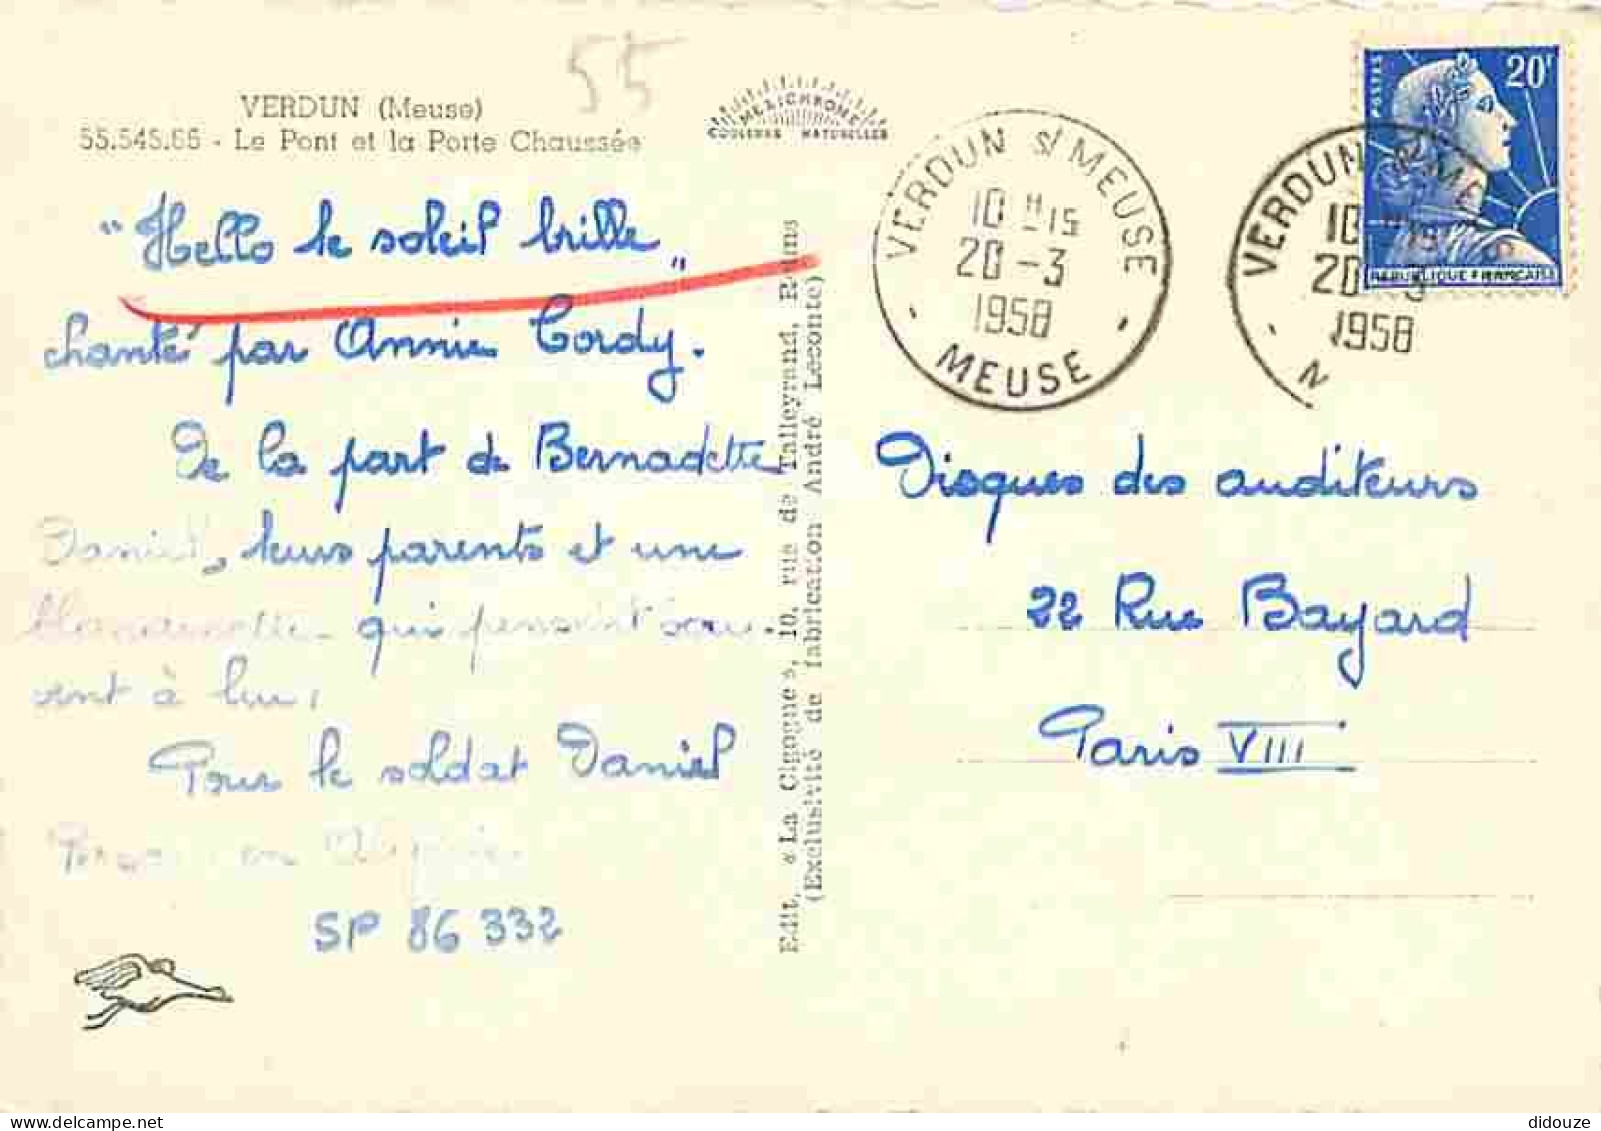 55
VERDUN (Meuse)
55.545.65 - Le Pont et la Porte Chaussée
MEXICHROME
COULEURS NATURELLES
"Hello le soleil brille"
chanté par Annie Cordy.
De la part de Bernadette
Daniel, leurs parents et une
qui pensent sou-
vent à lui,
Pour le soldat Daniel
en
SP 86 332
Edit. « La Cigogne », 10, rue de Talleyrand, Reims
(Exclusivité de fabrication André Leconte)
VERDUN S/ MEUSE
10 H 15
20 - 3
1958
MEUSE
VERDUN S/ ME
10 H 15
20 - 3
1958
M
POSTES
20F
REPUBLIQUE FRANCAISE
Disques des auditeurs
22 Rue Bayard
Paris VIII
didouze